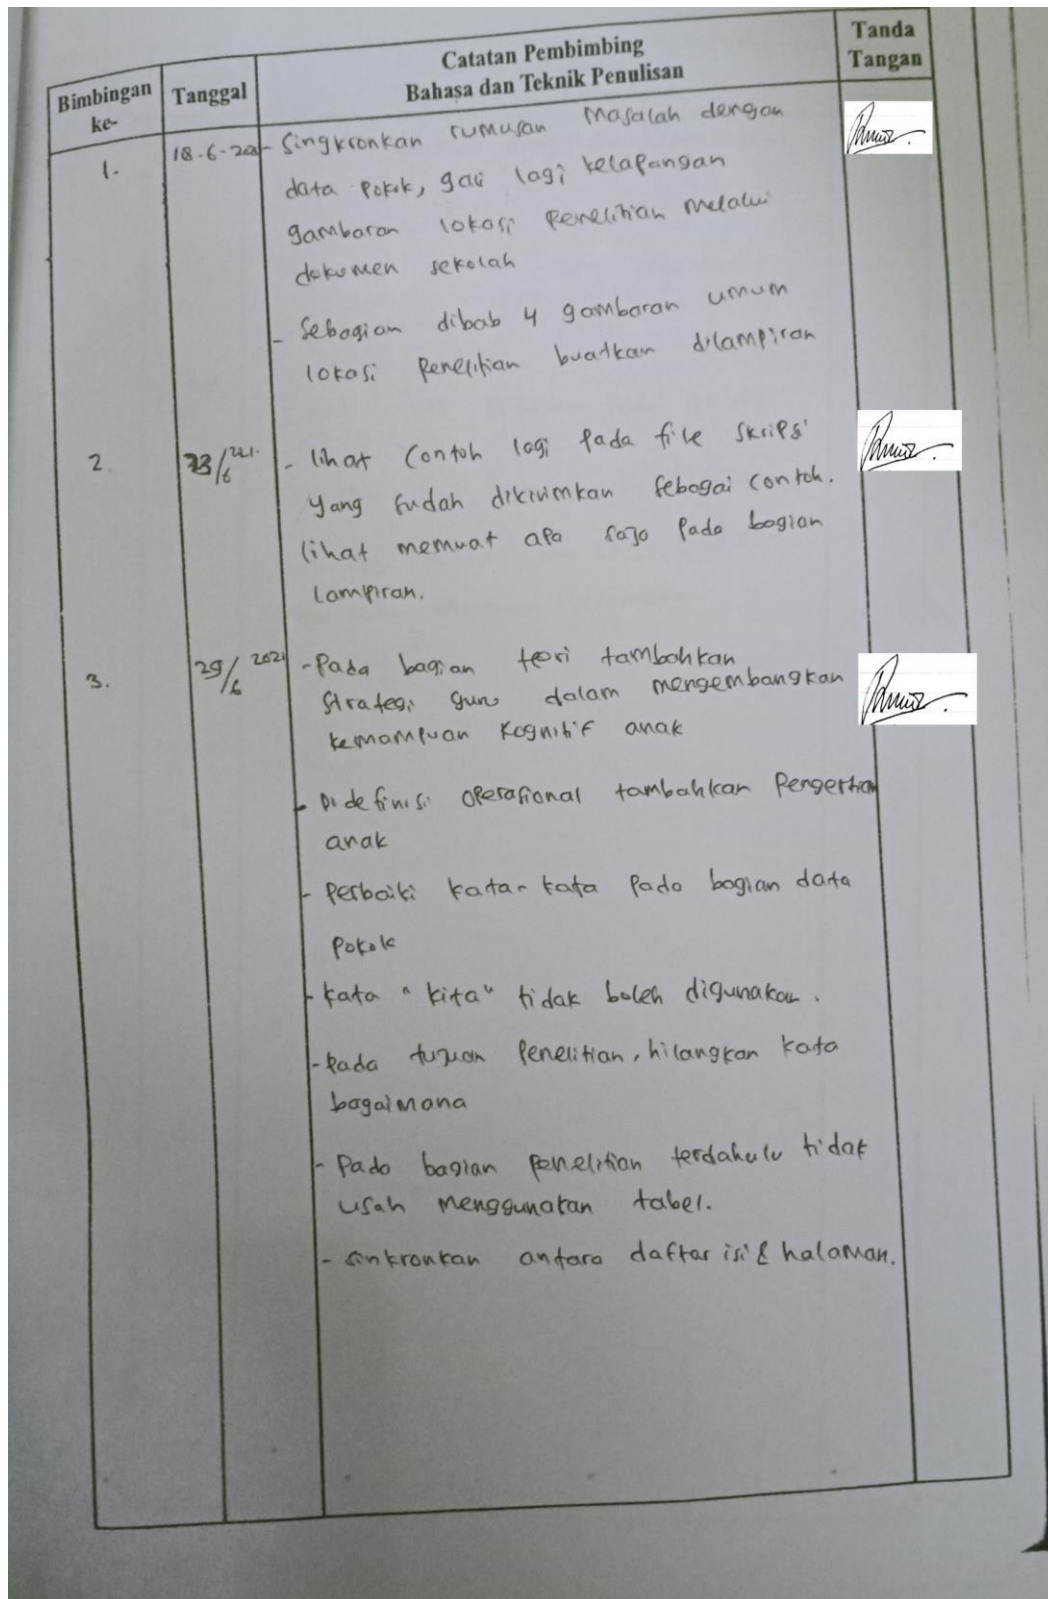 Bimbingan ke-
Tanggal
Catatan Pembimbing
Bahasa dan Teknik Penulisan
Tanda Tangan
1.
18-6-20
- Singkronkan rumusan masalah dengan
data pokok, gali lagi kelapangan
gambaran lokasi penelitian melalui
dokumen sekolah
- Sebagian dibab 4 gambaran umum
lokasi penelitian buatkan dilampiran
2.
23/6
- lihat contoh lagi pada file skripsi
yang sudah dikirimkan sebagai contoh.
lihat memuat apa saja pada bagian
lampiran.
3.
29/6 2021
- Pada bagian teori tambahkan
strategi guru dalam mengembangkan
kemampuan kognitif anak
- Di definisi operasional tambahkan pengertian
anak
- Perbaiki kata-kata pada bagian data
pokok
- kata "kita" tidak boleh digunakan.
- Pada tujuan penelitian, hilangkan kata
bagaimana
- Pada bagian penelitian terdahulu tidak
usah menggunakan tabel.
- sinkronkan antara daftar isi & halaman.